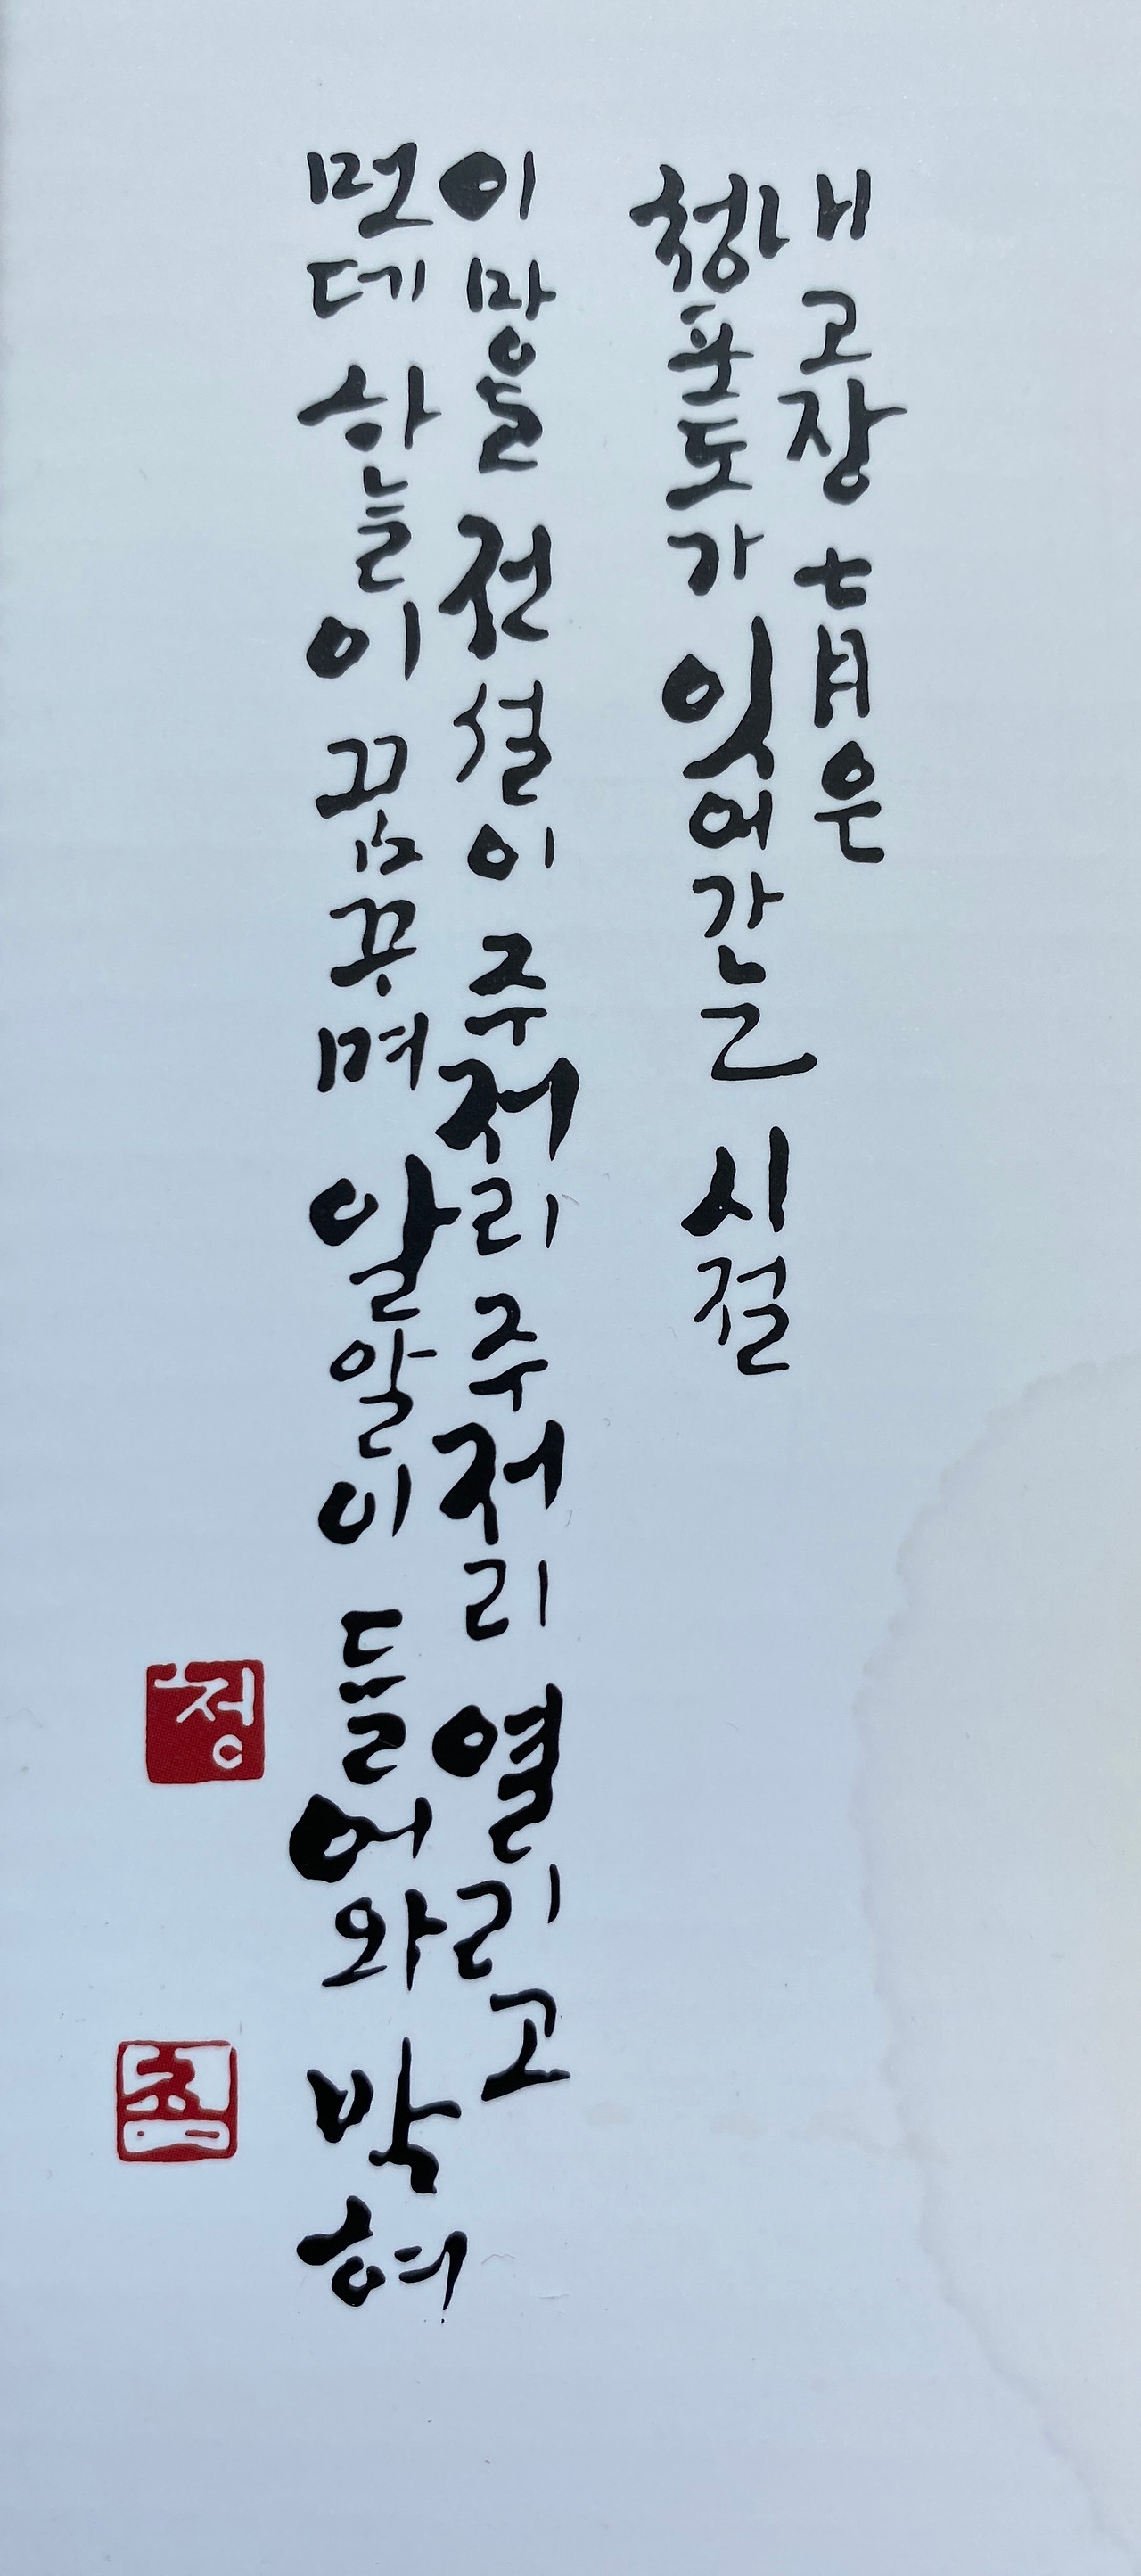 내 고장 七月은
청포도가 익어가는 시절
이 마을 전설이 주저리 주저리 열리고
먼데 하늘이 꿈꾸며 알알이 들어와 박혀
정